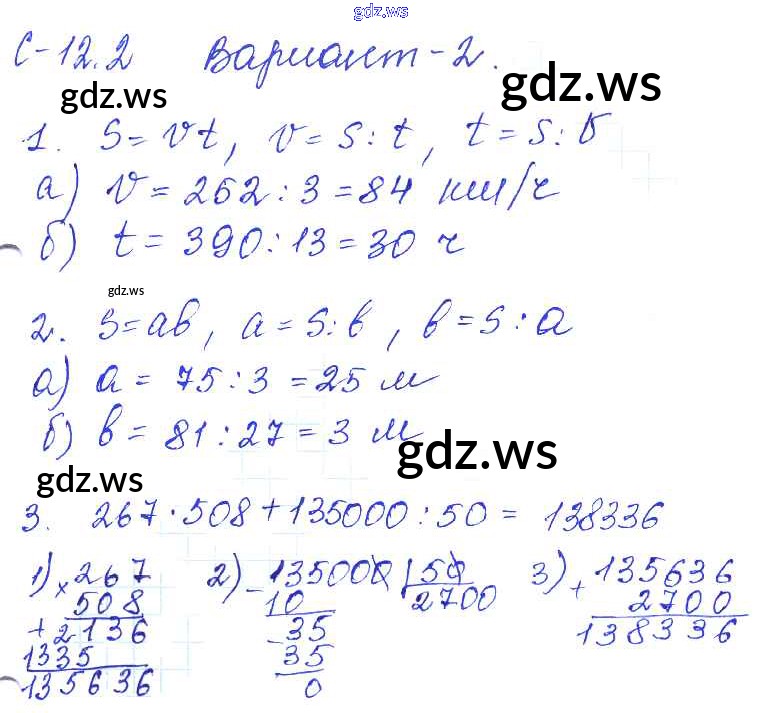 gdz.ws
С-12.2 Вариант-2.
gdz.ws gdz.ws
1. S=vt, v=S:t, t=S:v
а) v=262:3=84 км/ч
б) t=390:13=30 ч
gdz.ws
2. S=ab, a=S:b, b=S:a
а) a=75:3=25 м
б) b=81:27=3 м
gdz.ws gdz.ws
3. 267·508+135000:50=138336
1) × 267 2) - 135000 | 50 3) + 135636
508 10 2700 2700
+ 2136 - 35 138336
1335 35
135636 0